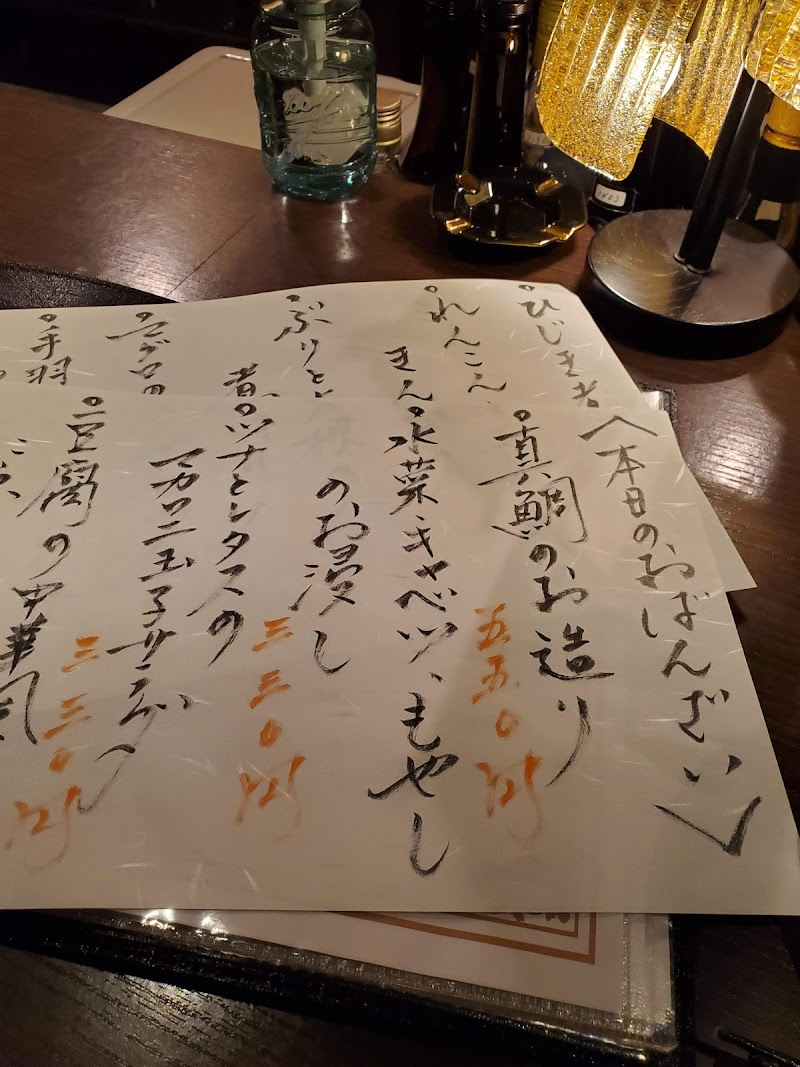 〈本日のおばんざい〉
○真鯛のお造り
五五〇円
○水菜、キャベツ、もやし
のお浸し
三三〇円
○ツナとレタスの
マカロニ玉子サラダ
三三〇円
○豆腐の中華風
○ひじき煮
○れんこん
きん
○ぶりと
煮
○マグロの
○手羽